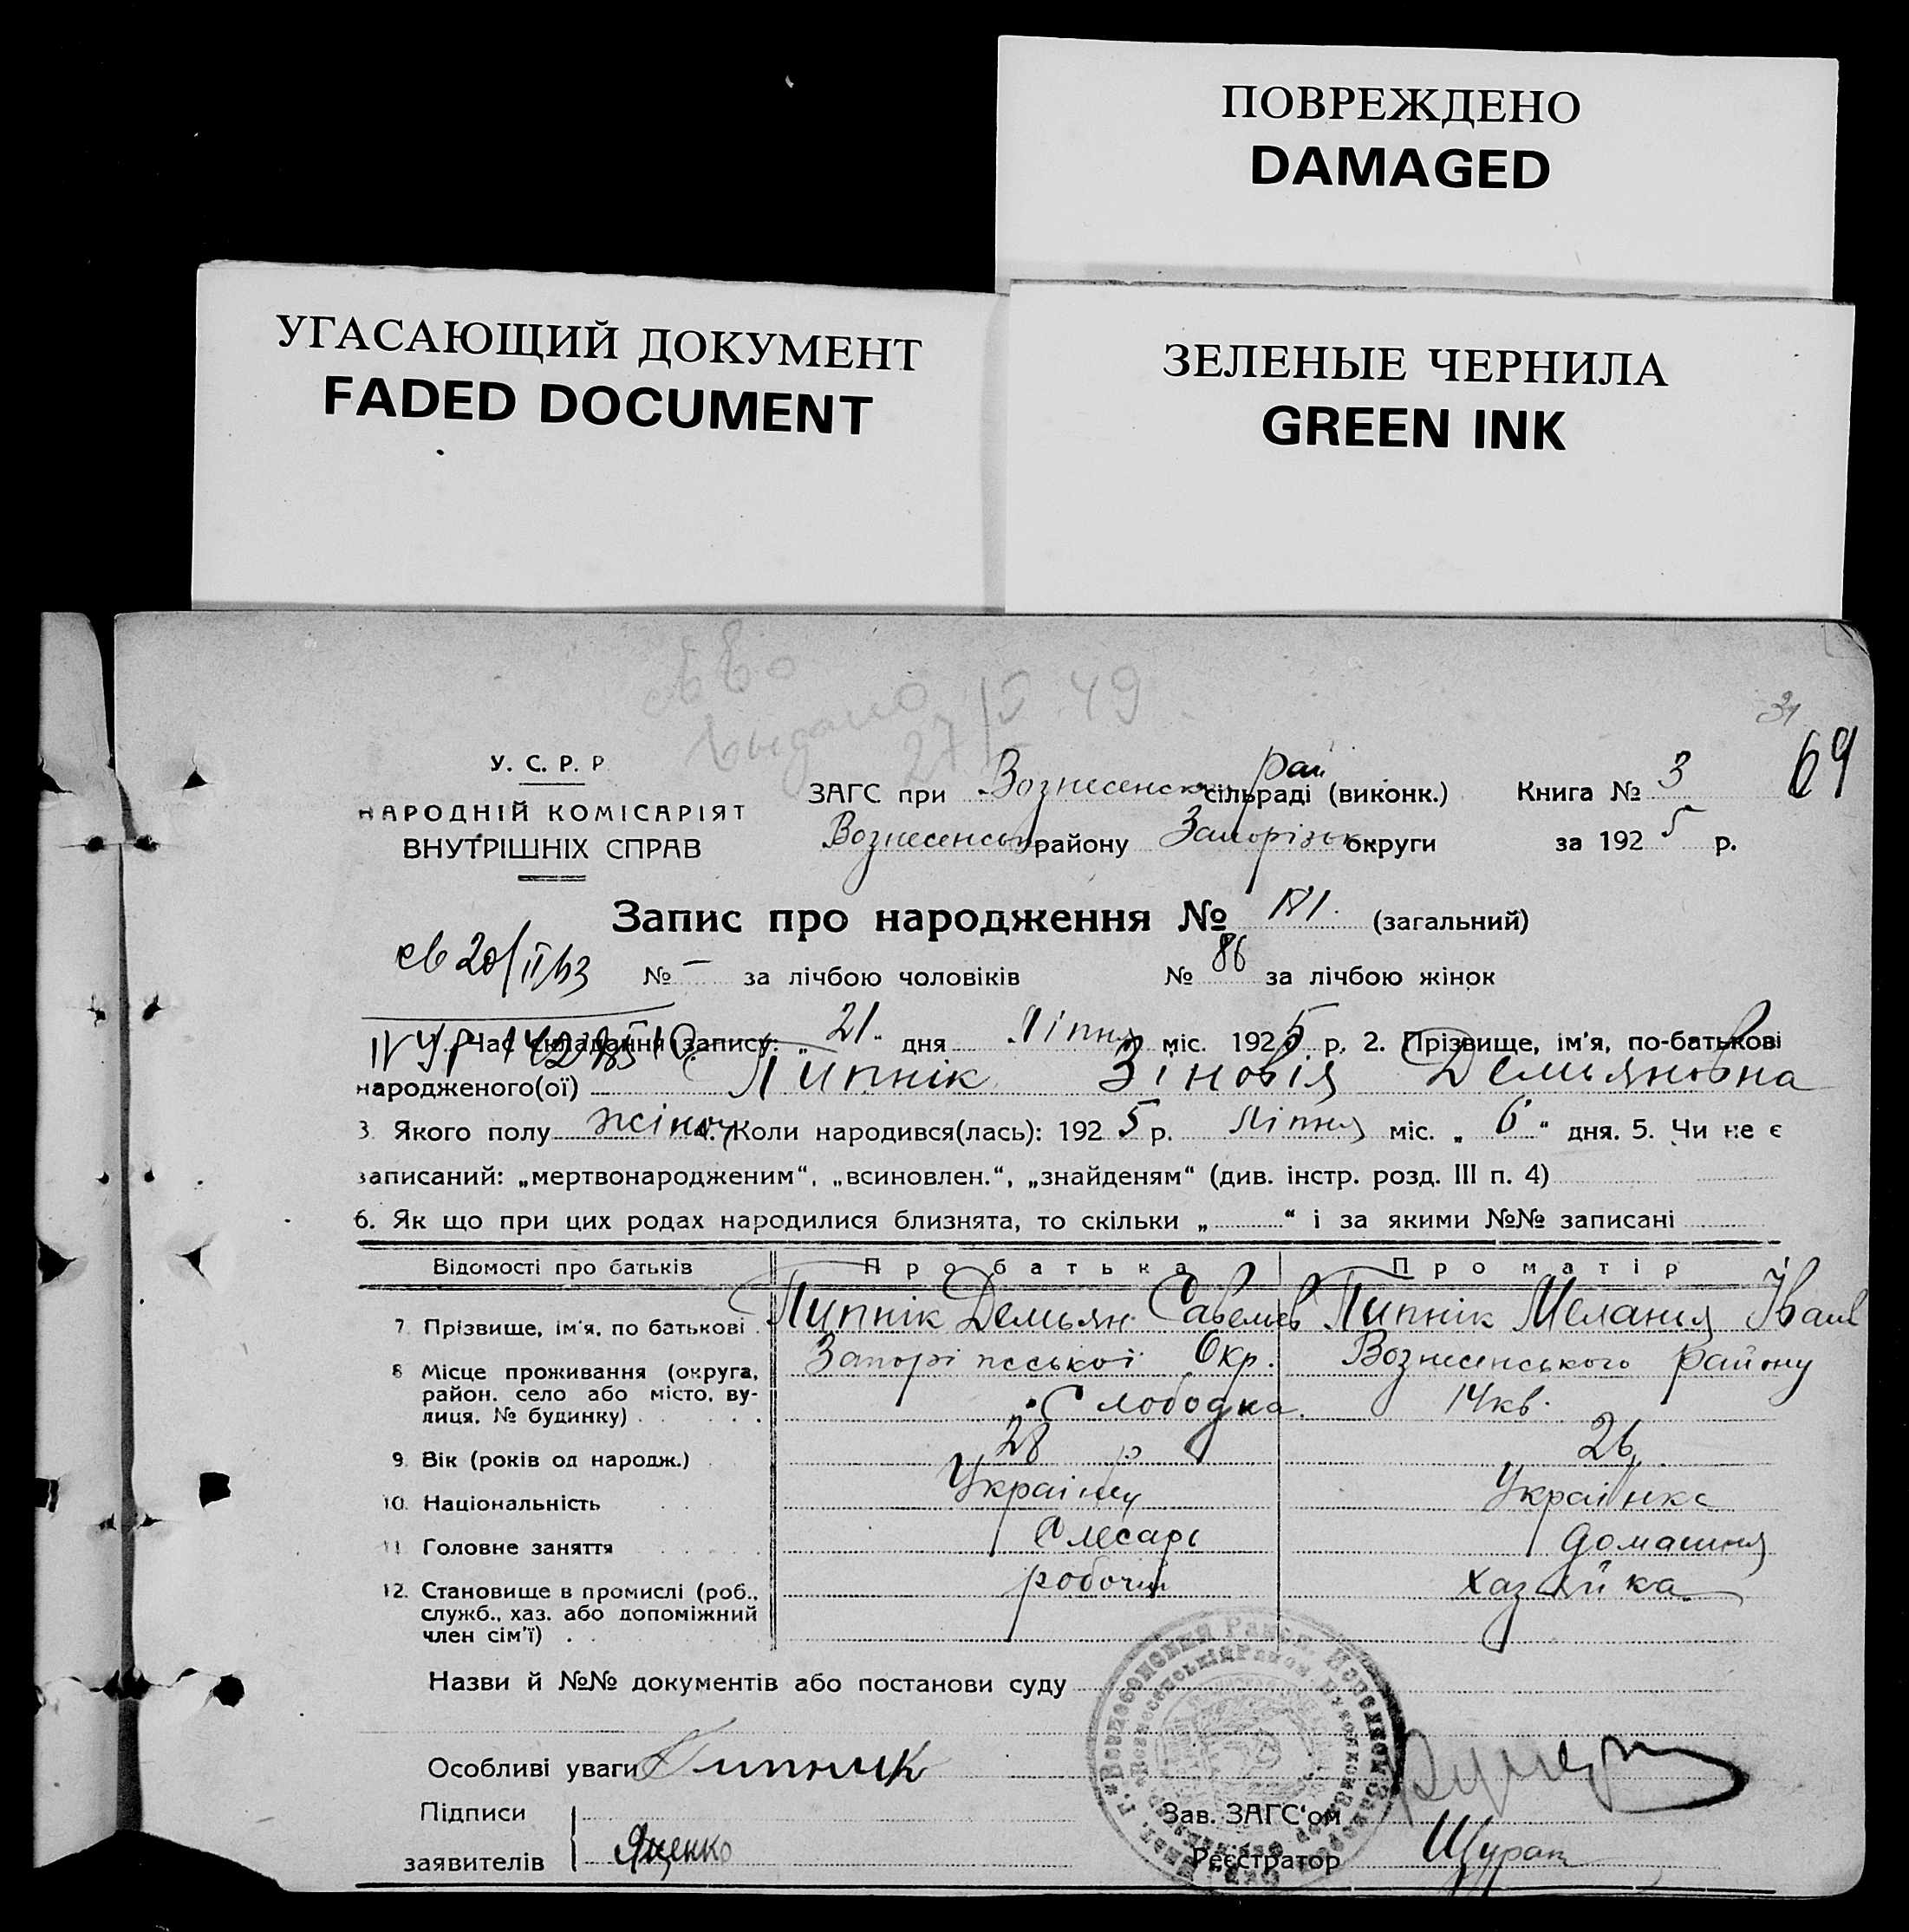 ПОВРЕЖДЕНО
DAMAGED
УГАСАЮЩИЙ ДОКУМЕНТ
FADED DOCUMENT
ЗЕЛЕНЫЕ ЧЕРНИЛА
GREEN INK
выдано
27/V 49
31
69
У. С. Р. Р
НАРОДНІЙ КОМІСАРІЯТ
ВНУТРІШНІХ СПРАВ
рай
ЗАГС при Вознесенськ сільраді (виконк.) Книга № 3
Вознесенськ району Запорізьк округи за 1925 р.
Запис про народження № 181. (загальний)
св 20/II 43 № — за лічбою чоловіків № 86 за лічбою жінок
Час складання запису: „21“ дня Ліпня міс. 1925 р. 2. Прізвище, ім'я, по-батькові
народженого(ої) Липнік Зіновія Демьяновна
3. Якого полу жіноч 4. Коли народився(лась): 1925 р. Ліпня міс. „6“ дня. 5. Чи не є
записаний: „мертвонародженим“, „всиновлен.“, „знайденям“ (див. інстр. розд. III п. 4)
6. Як що при цих родах народилися близнята, то скільки „ “ і за якими №№ записані
Відомості про батьків Про батька Про матір
7. Прізвище, ім'я, по батькові Липнік Демьян Савельев Липнік Мелания Іван
8 Місце проживання (округа, Окр. Вознесенського району
район, село або місто, ву- Слободка 14 кв.
лиця, № будинку)
9. Вік (років од народж.) 28 р 26
10. Національність Українец Українка
11 Головне заняття Слесарь домашня
12. Становище в промислі (роб., робочий хазяйка
служб., хаз. або допоміжний
член сім'ї)
Назви й №№ документів або постанови суду
Особливі уваги Липник
Підписи Зав. ЗАГС'ом
заявителів Яценко Реєстратор Щурат